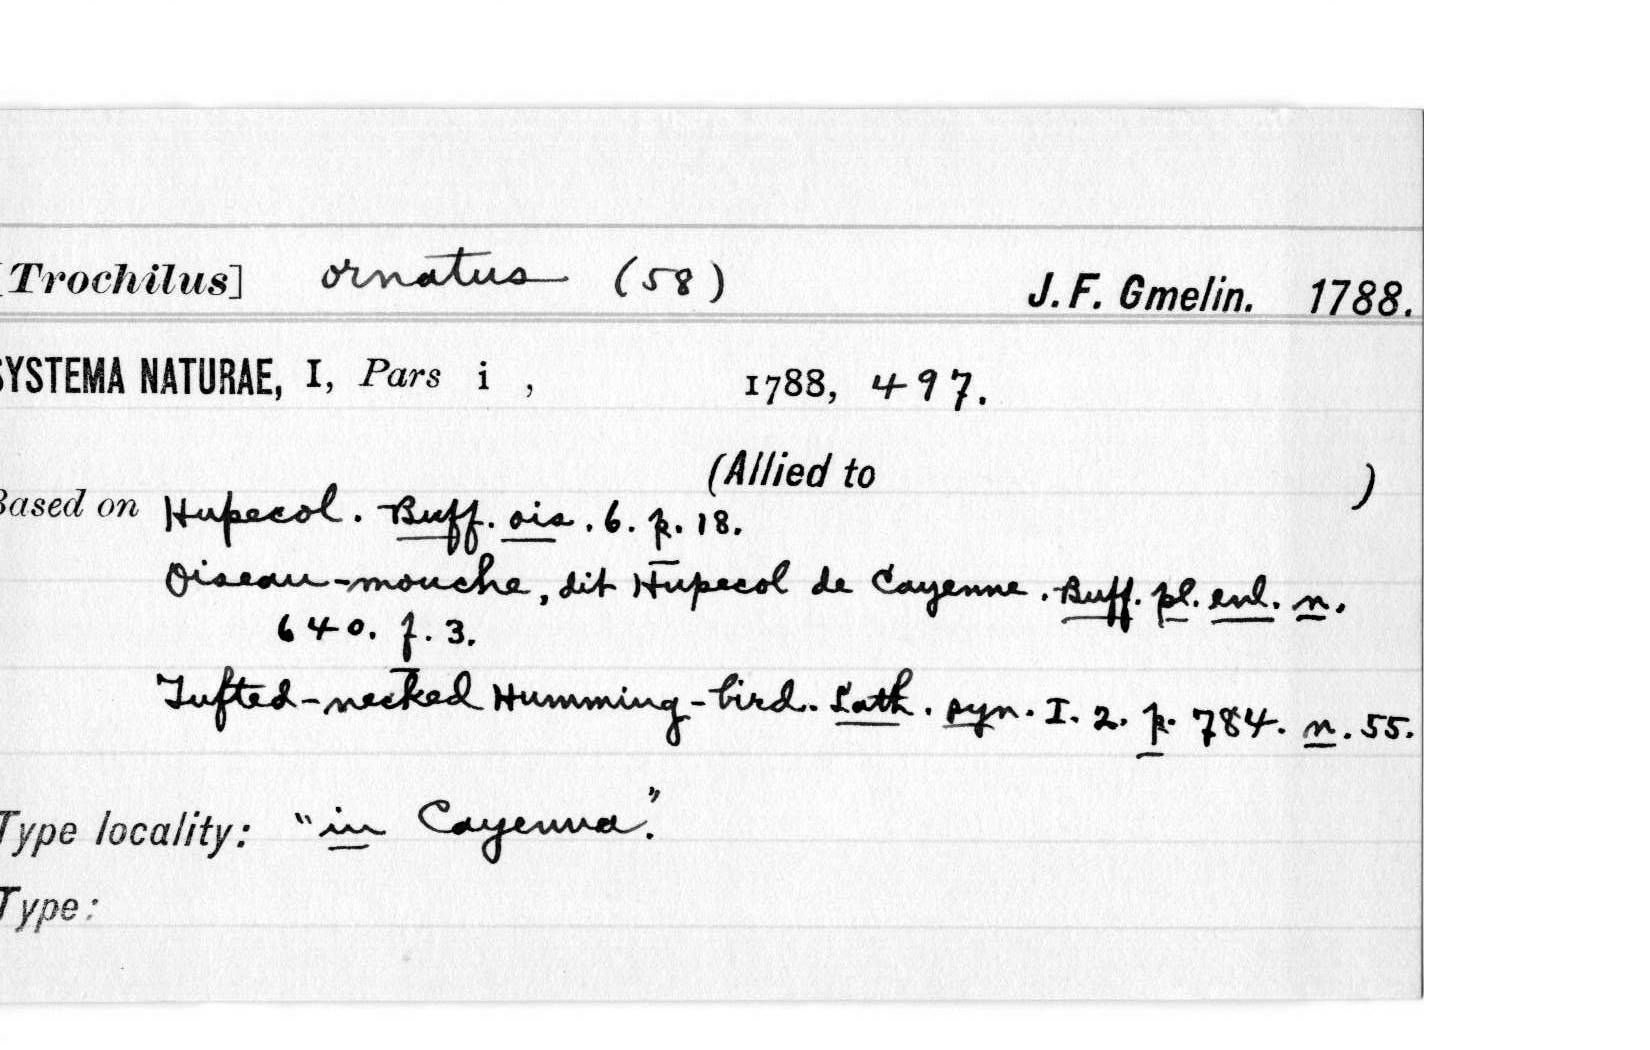 [Trochilus] ornatus (58) J. F. Gmelin. 1788.
SYSTEMA NATURAE, I, Pars i , 1788, 497.
(Allied to )
Based on Hupecol. Buff. ois. 6. p. 18.
Oiseau-mouche, dit Hupecol de Cayenne. Buff. pl. enl. n.
640. f. 3.
Tufted-necked Humming-bird. Lath. syn. I. 2. p. 784. n. 55.
Type locality: "in Cayenna".
Type: